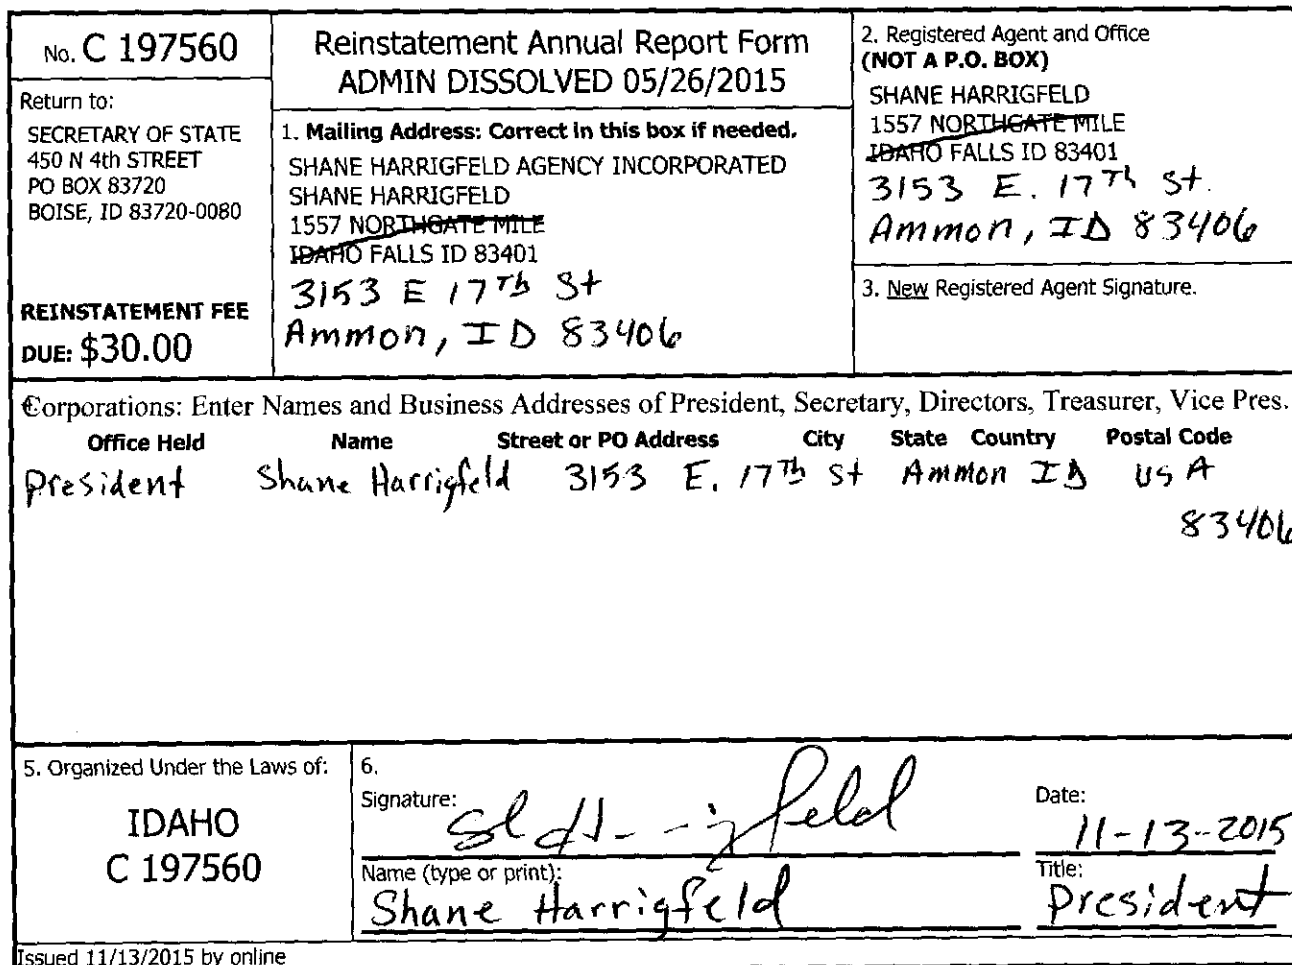 No. C 197560
Return to:
SECRETARY OF STATE
450 N 4th STREET
PO BOX 83720
BOISE, ID 83720-0080
REINSTATEMENT FEE
DUE: $30.00
Reinstatement Annual Report Form
ADMIN DISSOLVED 05/26/2015
1. Mailing Address: Correct in this box if needed.
SHANE HARRIGFELD AGENCY INCORPORATED
SHANE HARRIGFELD
1557 NORTHGATE MILE
IDAHO FALLS ID 83401
3153 E 17Th St
Ammon, ID 83406
2. Registered Agent and Office
(NOT A P.O. BOX)
SHANE HARRIGFELD
1557 NORTHGATE MILE
IDAHO FALLS ID 83401
3153 E. 17Th St.
Ammon, ID 83406
3. New Registered Agent Signature.
Corporations: Enter Names and Business Addresses of President, Secretary, Directors, Treasurer, Vice Pres.
Office Held Name Street or PO Address City State Country Postal Code
President Shane Harrigfeld 3153 E. 17Th St Ammon ID USA
83406
5. Organized Under the Laws of:
IDAHO
C 197560
6.
Signature:
Date:
11-13-2015
Name (type or print):
Shane Harrigfeld
Title:
President
Issued 11/13/2015 by online